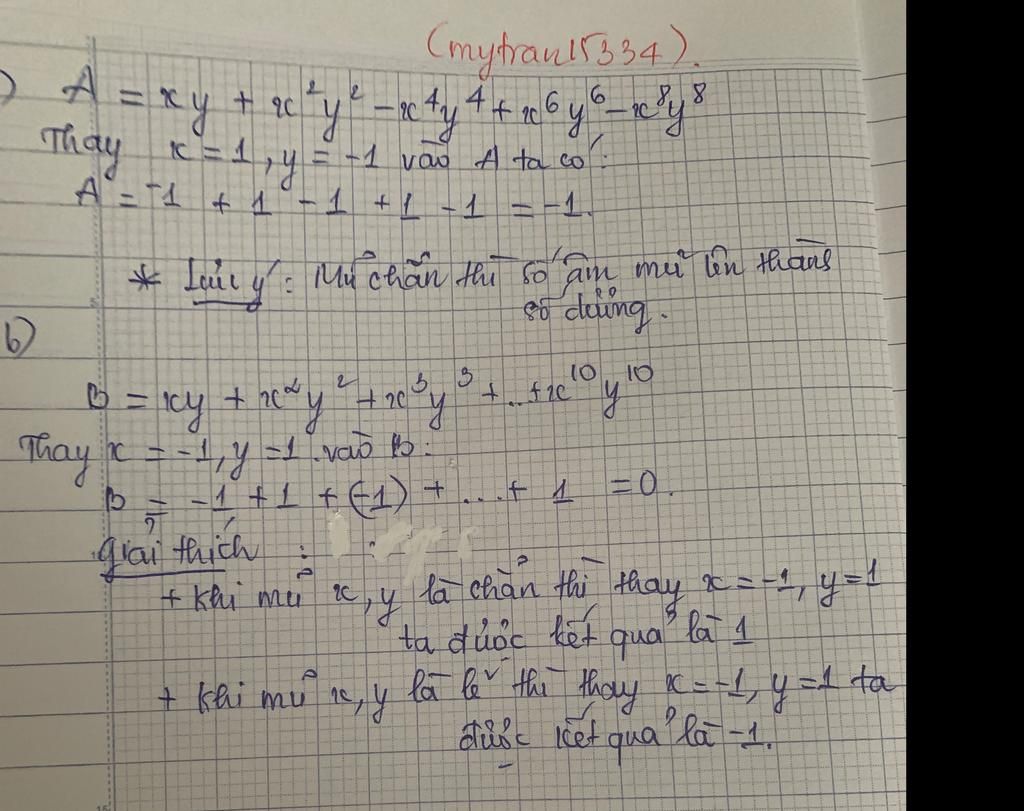 (mytran15334).
) A = xy + x²y² - x⁴y⁴ + x⁶y⁶ - x⁸y⁸
Thay x = 1, y = -1 vào A ta có:
A = -1 + 1 - 1 + 1 - 1 = -1.
* Lưu ý: Mũ chẵn thì số âm mũ lên thành
số dương.
b)
B = xy + x²y² + x³y³ + ... + x¹⁰y¹⁰
Thay x = -1, y = 1 vào B:
B = -1 + 1 + (-1) + ... + 1 = 0.
Giải thích :
+ Khi mũ x, y là chẵn thì thay x = -1, y = 1
ta được kết quả là 1
+ Khi mũ x, y là lẻ thì thay x = -1, y = 1 ta
được kết quả là -1.